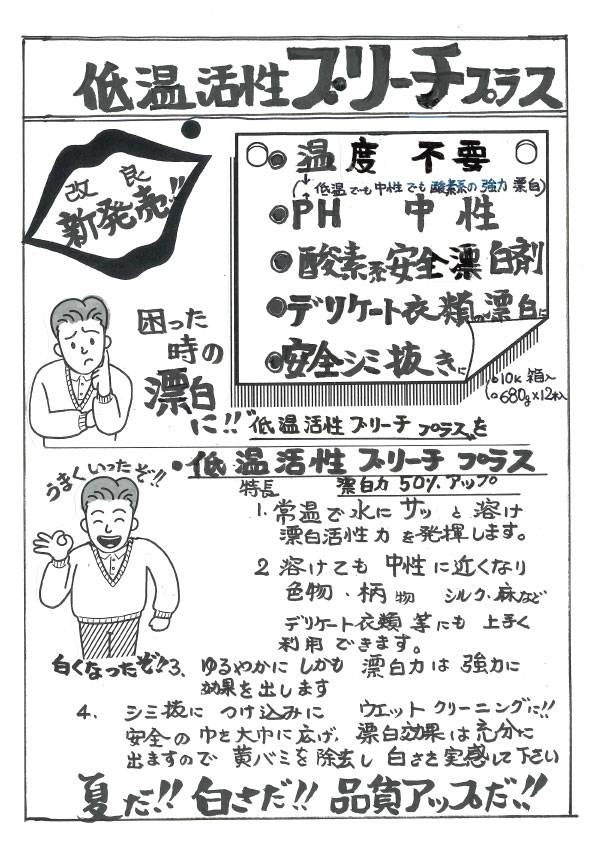 低温活性ブリーチプラス
改良
新発売!!
温度 不要
(→低温でも中性でも酸素系の強力漂白)
PH 中性
酸素系安全漂白剤
デリケート衣類の漂白に
安全シミ抜きに
10K 箱入
680g×12本入
困った
時の
漂白
に!!
"低温活性ブリーチプラス"を
うまくいったぞ!!
・低温活性ブリーチプラス
特長 漂白力50%アップ
1. 常温で水にサッと溶け
漂白活性力を発揮します。
2 溶けても中性に近くなり
色物・柄物 シルク・麻など
デリケート衣類等にも上手く
利用できます。
白くなったぞ!!
3、ゆるやかにしかも漂白力は強力に
効果を出します
4、シミ抜につけ込みに ウエットクリーニングに!!
安全の巾を大巾に広げ、漂白効果は充分に
出ますので黄バミを除去し白さを実感して下さい
夏だ!!白さだ!!品質アップだ!!